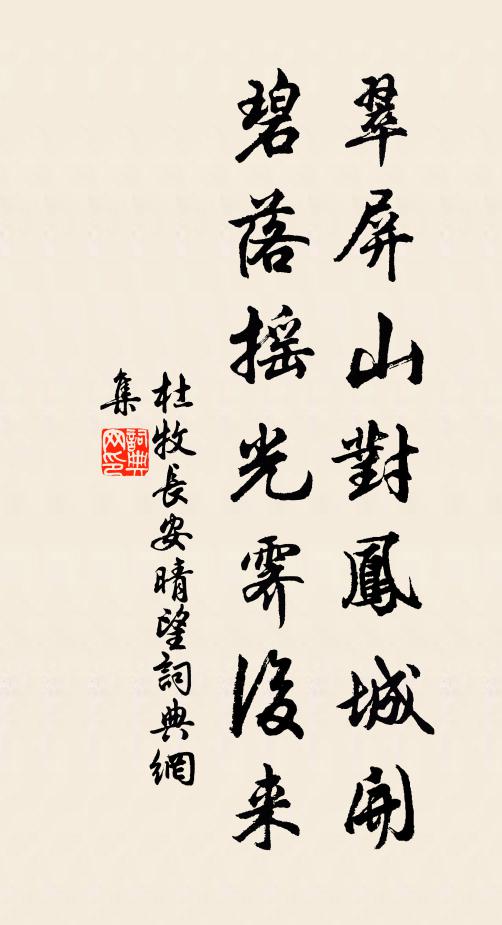 翠屏山對鳳城開
碧落搖光霽後来
杜牧長安晴望詞典網
集
詞典网印